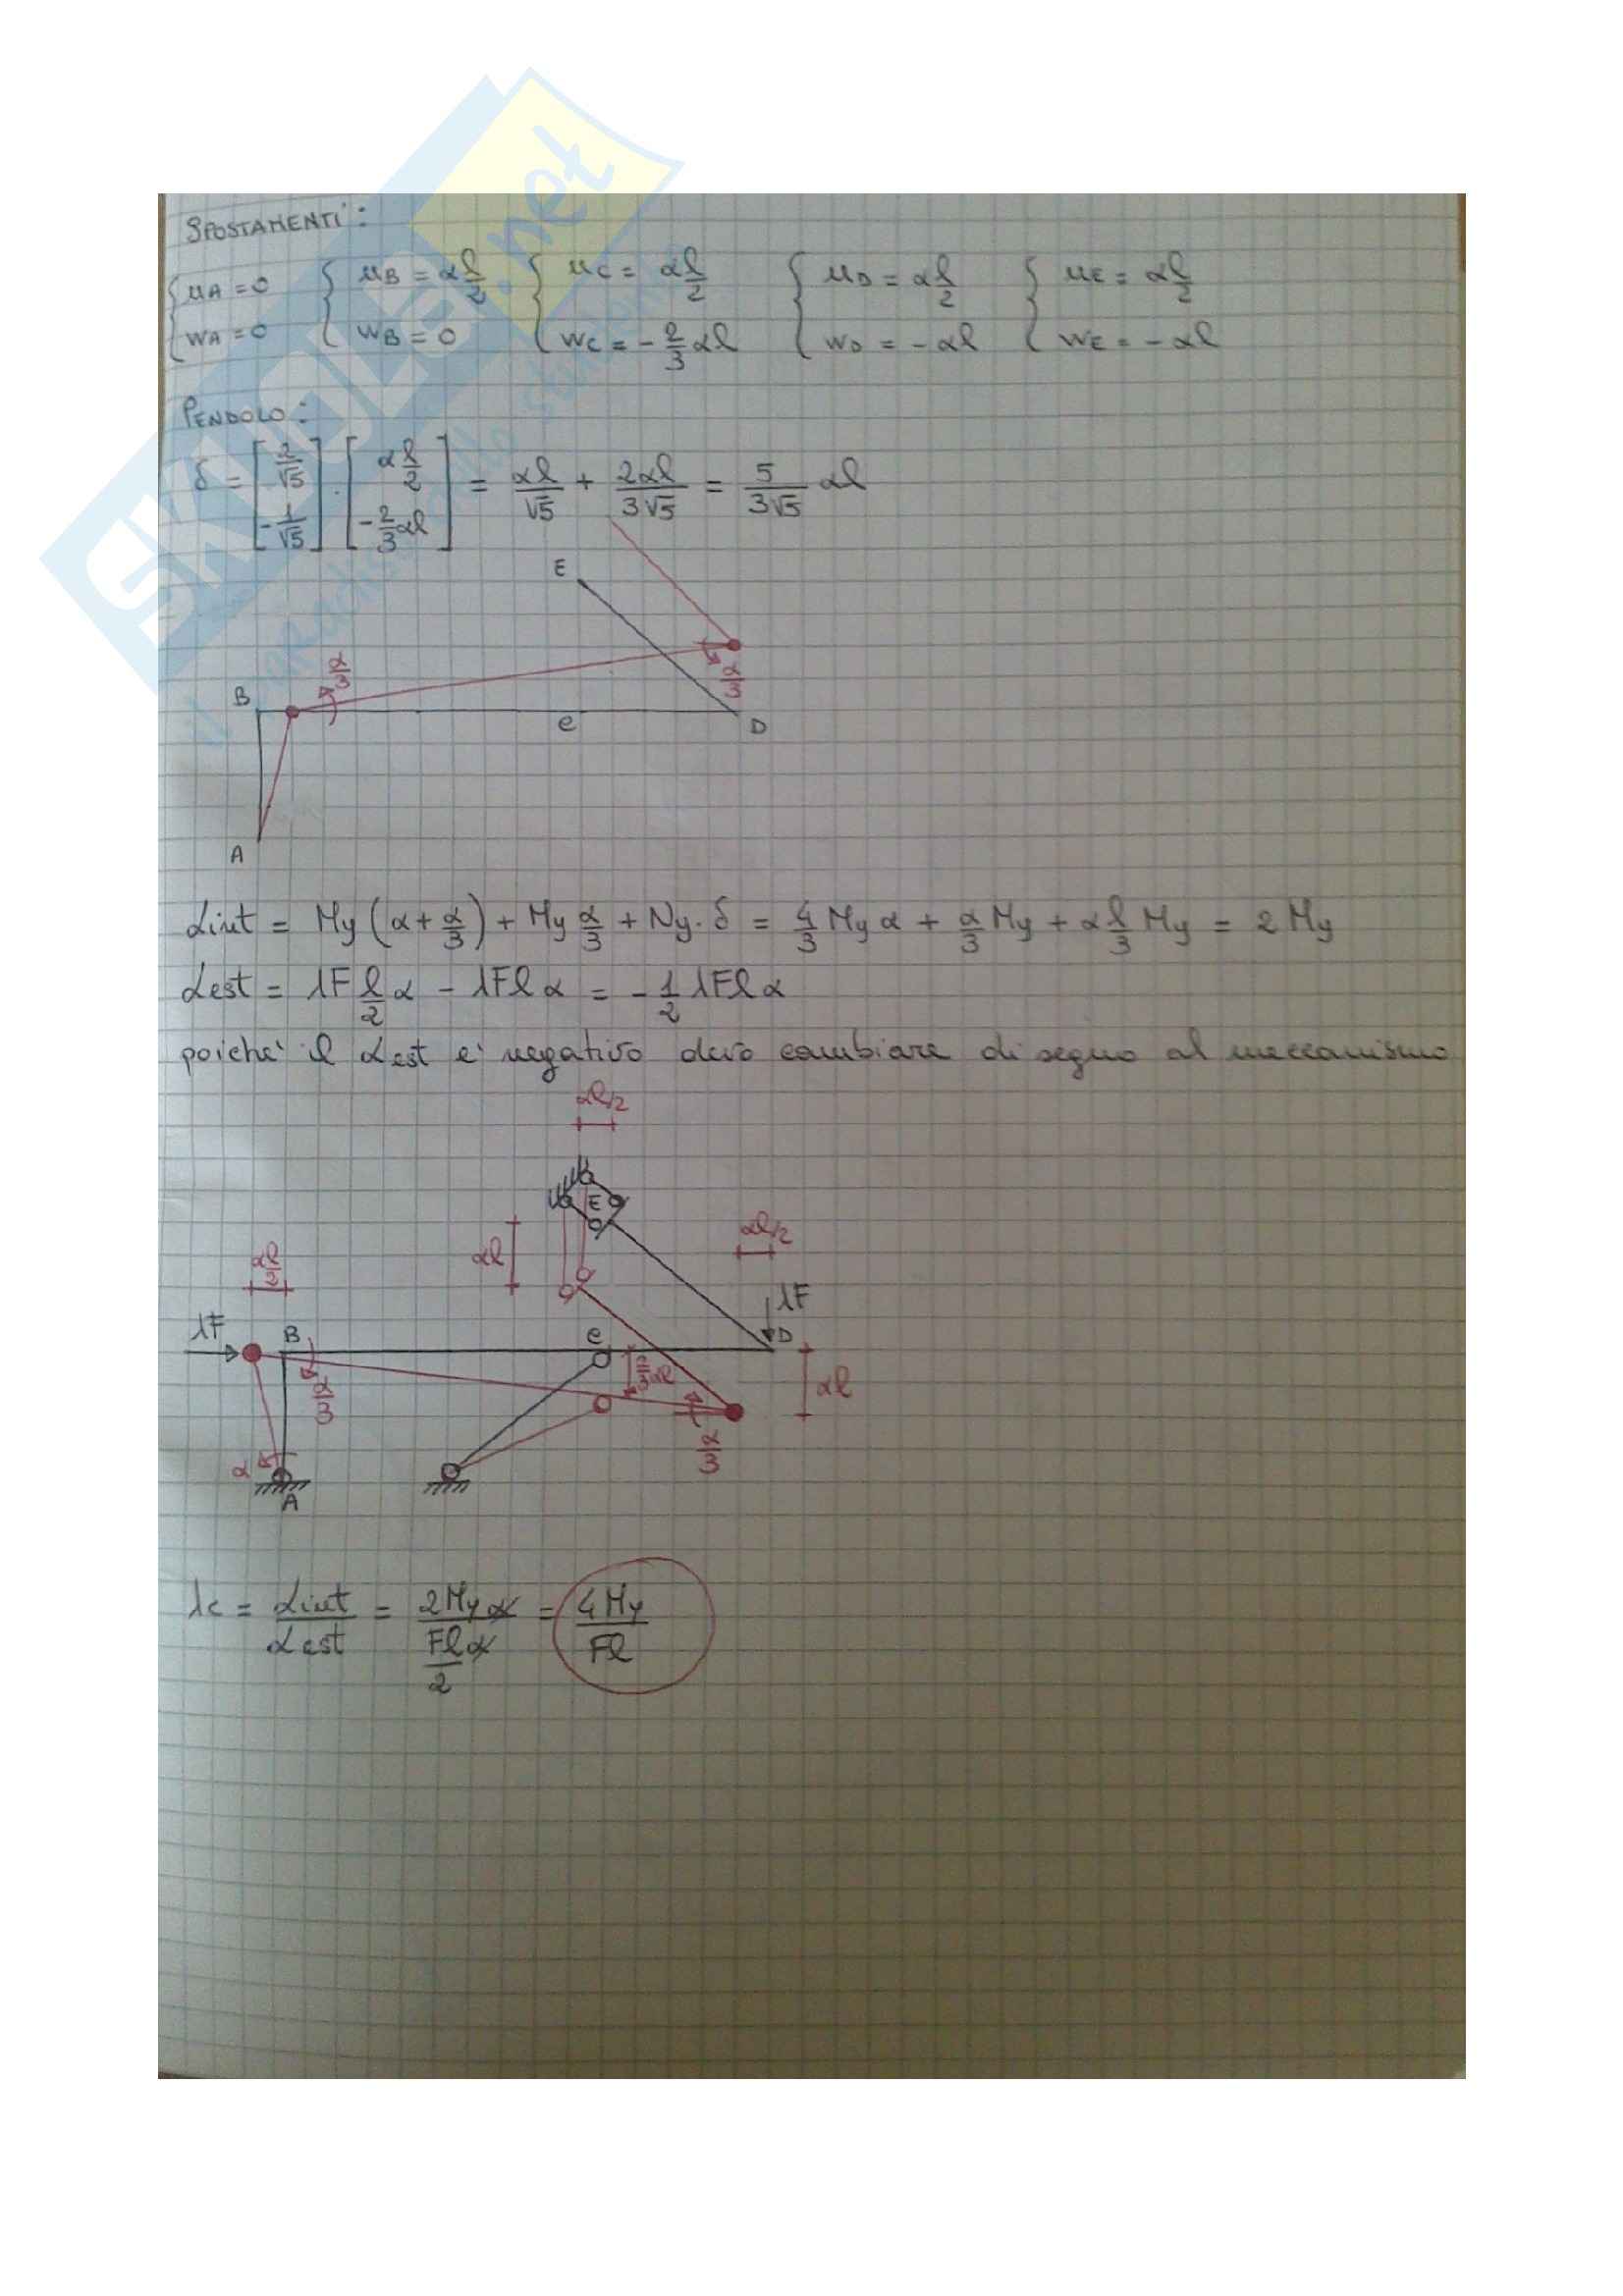 SPOSTAMENTI:
{ uA = 0 { uB = α l/2 { uC = α l/2 { uD = α l/2 { uE = α l/2
{ wA = 0 { wB = 0 { wC = - 2/3 αl { wD = - αl { wE = - αl
PENDOLO:
δ = [2/√5 -1/√5] · [α l/2 -2/3 αl] = αl/√5 + 2αl/3√5 = 5/3√5 αl
E
α/3
α/3
B
C
D
A
Lint = My (α + α/3) + My α/3 + Ny · δ = 4/3 My α + α/3 My + α l/3 My = 2 My
Lest = λF l/2 α - λFl α = - 1/2 λFl α
poiché il Lest è negativo devo cambiare di segno al meccanismo
αl/2
E
αl
αl/2
αl/2
λF
λF
B
C
D
α/3
2/3 αl
αl
α/3
α
A
λc = Lint/Lest = 2Myα / (Flα/2) = 4My/Fl
SKUOLa.net